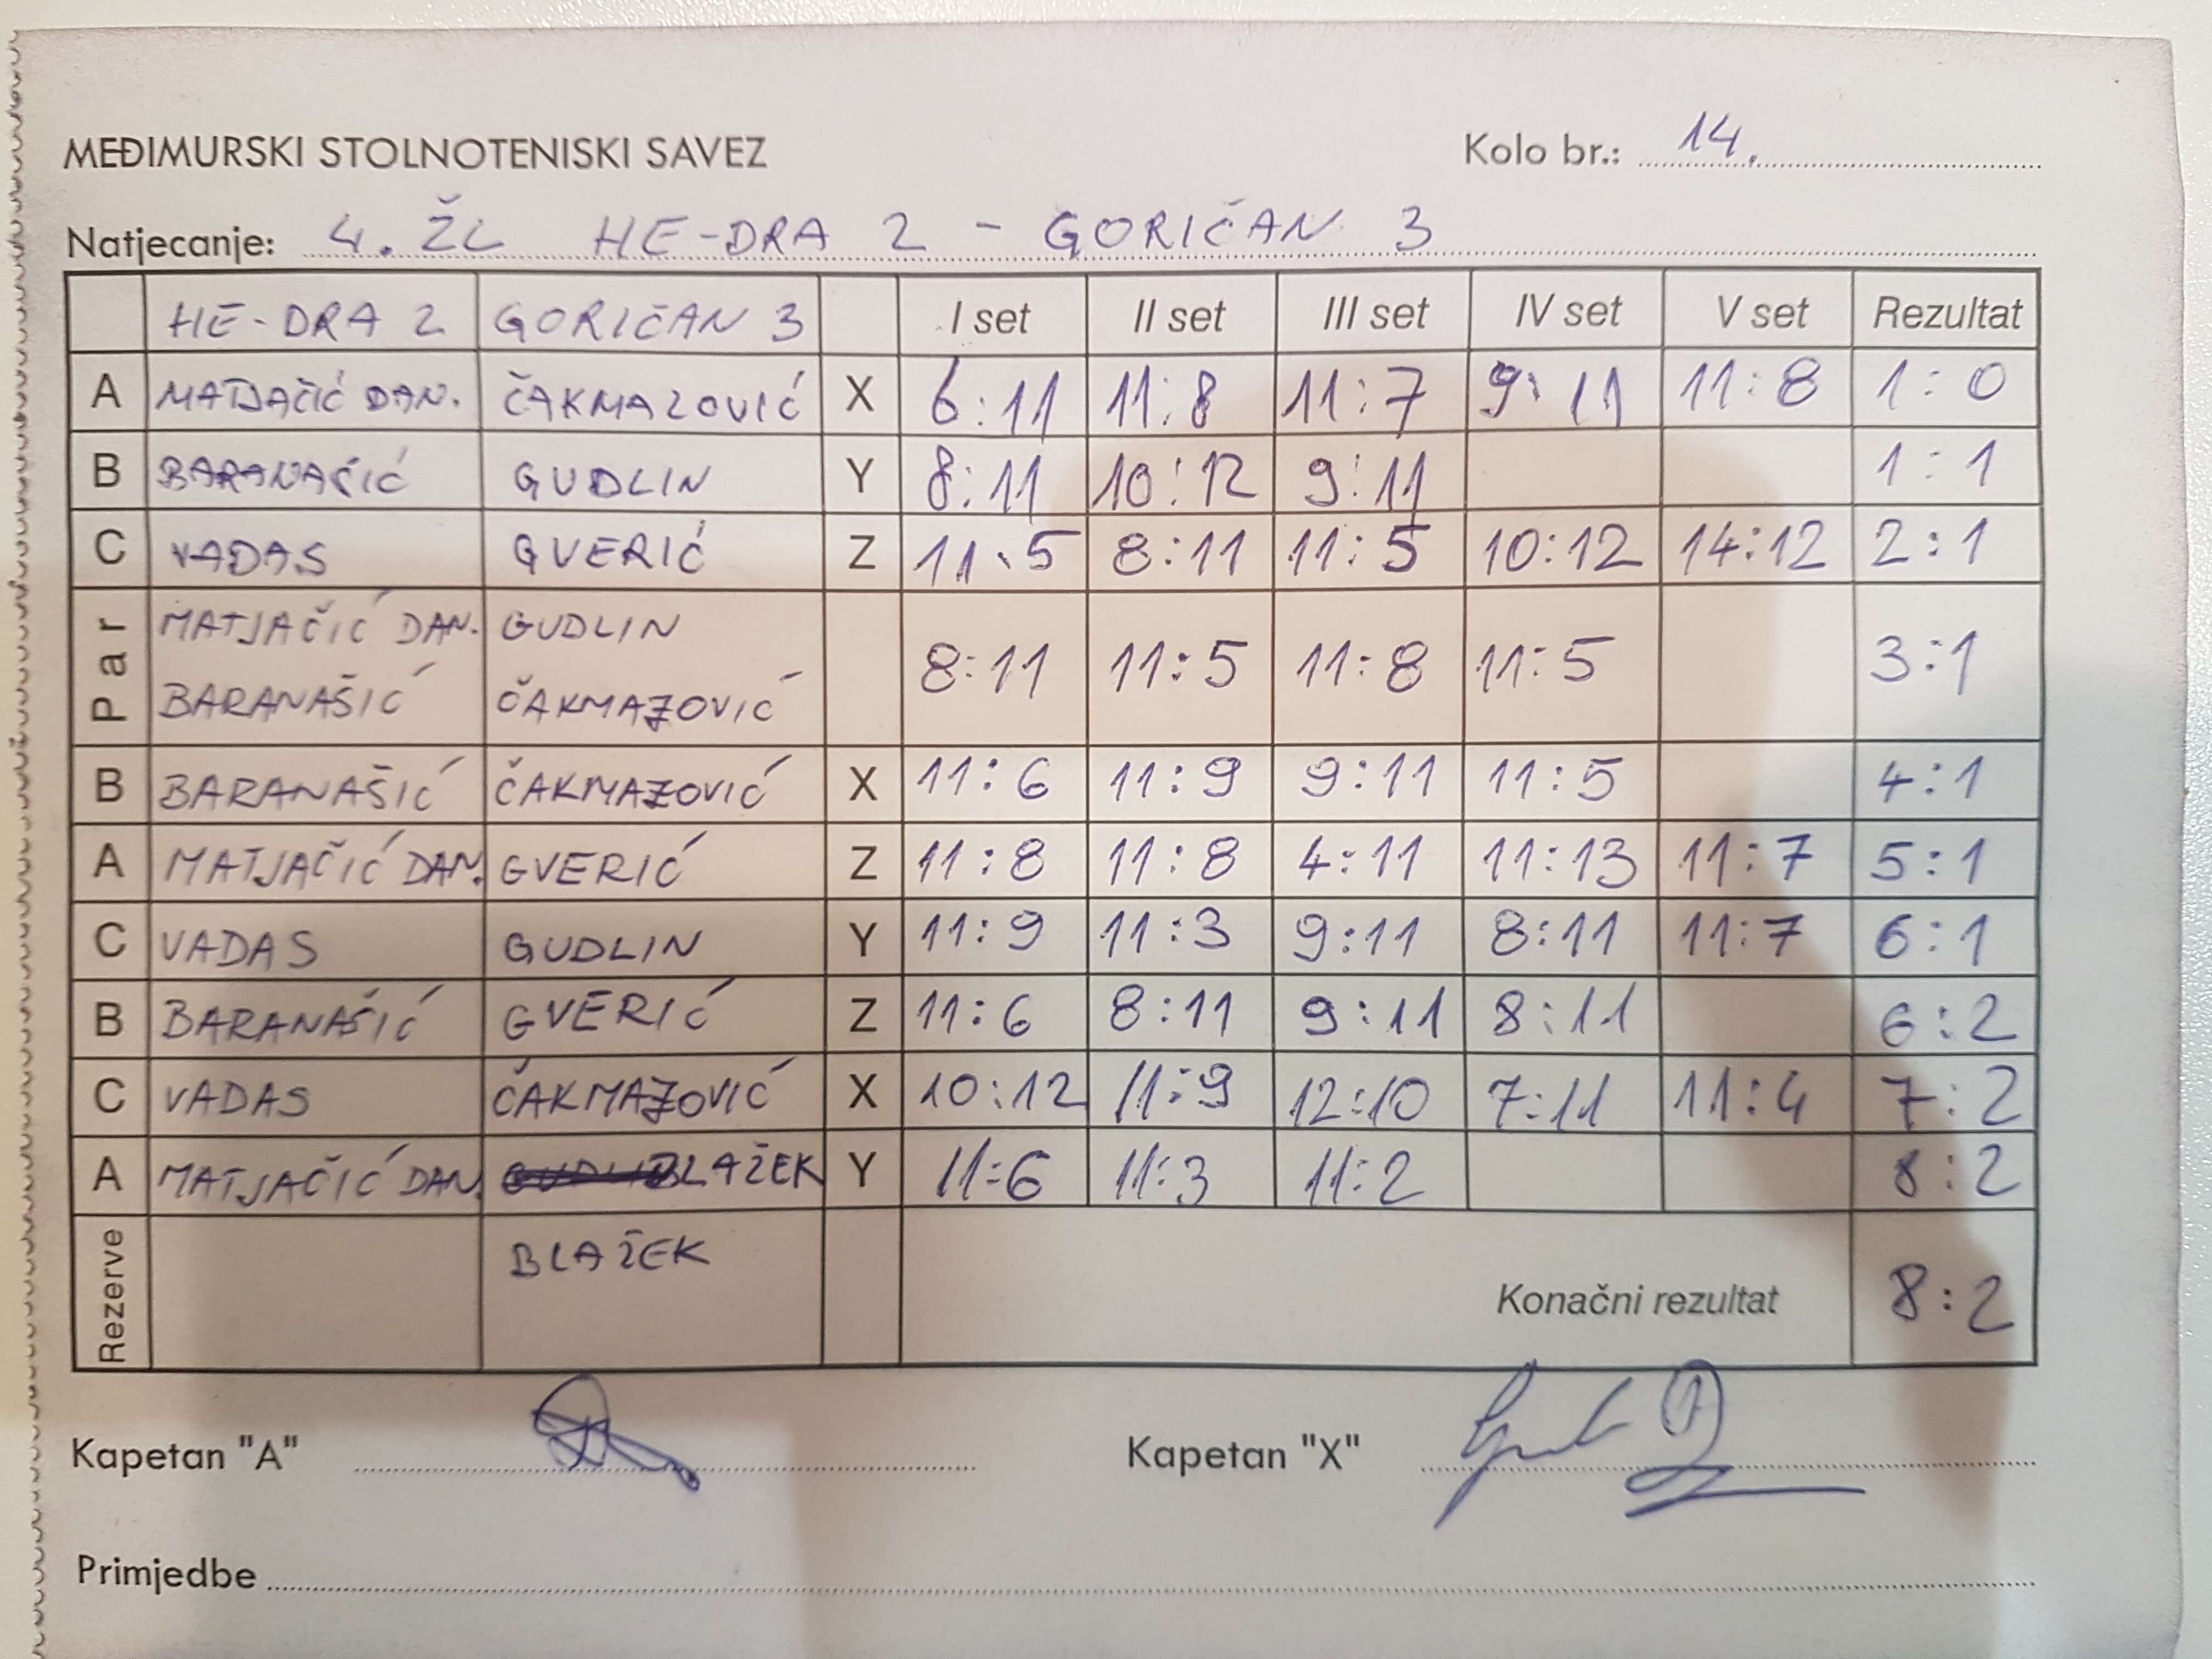 MEĐIMURSKI STOLNOTENISKI SAVEZ Kolo br.: 14.
Natjecanje: 4. ŽL HE-DRA 2 - GORIČAN 3
HE-DRA 2 GORIČAN 3 I set II set III set IV set V set Rezultat
A MATJAČIĆ DAN. ČAKMAZOVIĆ X 6:11 11:8 11:7 9:11 11:8 1:0
B BARANAŠIĆ GUDLIN Y 8:11 10:12 9:11 1:1
C VADAS GVERIĆ Z 11:5 8:11 11:5 10:12 14:12 2:1
Par MATJAČIĆ DAN. GUDLIN 8:11 11:5 11:8 11:5 3:1
BARANAŠIĆ ČAKMAZOVIĆ
B BARANAŠIĆ ČAKMAZOVIĆ X 11:6 11:9 9:11 11:5 4:1
A MATJAČIĆ DAN. GVERIĆ Z 11:8 11:8 4:11 11:13 11:7 5:1
C VADAS GUDLIN Y 11:9 11:3 9:11 8:11 11:7 6:1
B BARANAŠIĆ GVERIĆ Z 11:6 8:11 9:11 8:11 6:2
C VADAS ČAKMAZOVIĆ X 10:12 11:9 12:10 7:11 11:4 7:2
A MATJAČIĆ DAN. BLAŽEK Y 11:6 11:3 11:2 8:2
Rezerve BLAŽEK Konačni rezultat 8:2
Kapetan "A" Kapetan "X"
Primjedbe